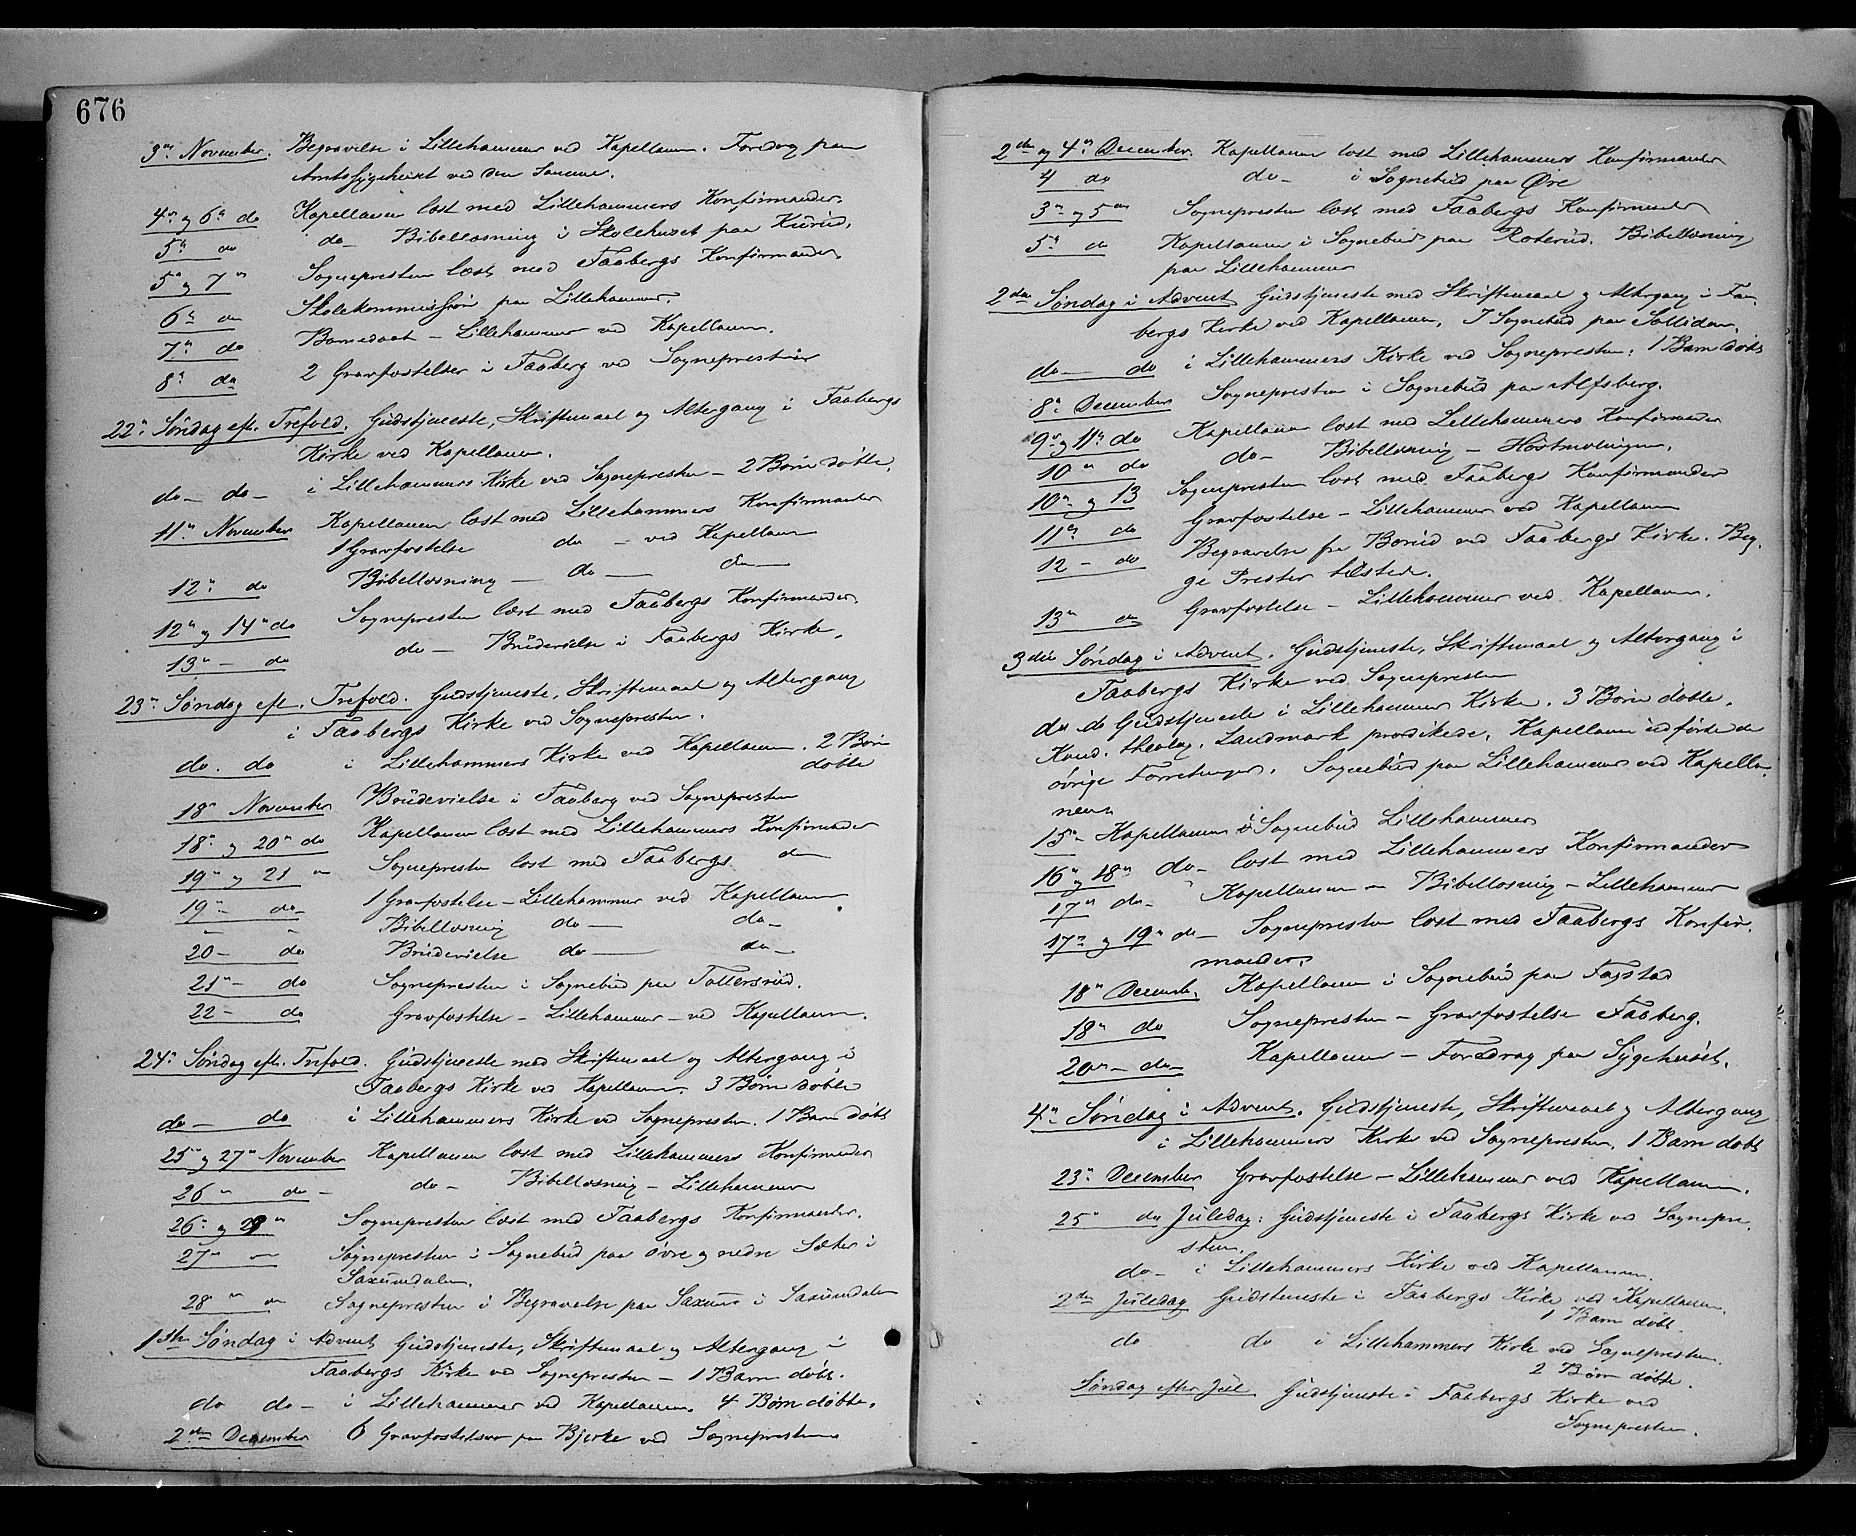 676
3die November. Begravelse i Lillehammer ved Kapellanen. Foredrag paa
Amtssygehuset ved den Samme.
4de og 6te do Kapellanen læst med Lillehammers Konfirmander.
5te do do – Bibellæsning i Skolehuset paa
5te og 7de Sognepresten læst med Faabergs Konfirmander.
6te do Skolekommission paa Lillehammer.
7de do Barnedaab – Lillehammer ved Kapellanen.
8de do 2 Gravfæstelser i Faaberg ved Sognepresten
22de Søndag eft. Trefold. Gudstjeneste, Skriftemaal og Altergang i Faabergs
Kirke ved Kapellanen.
do – do – i Lillehammers Kirke ved Sognepresten – 2 Børn døbte.
11te November Kapellanen læst med Lillehammers Konfirmander
1 Gravfæstelse do – ved Kapellanen
12te do Bibellæsning – do – do –
12te og 14de do Sognepresten læst med Faabergs Konfirmander.
13de – do do – Brudevielse i Faabergs Kirke.
23de Søndag eft. Trefold. Gudstjeneste, Skriftemaal og Altergang
i Faabergs Kirke ved Sognepresten.
do. do i Lillehammers Kirke ved Kapellanen. 2 Børn
døbte
18de November Brudevielse i Faaberg ved Sognepresten
18de og 20de do Kapellanen læst med Lillehammers Konfirmander
19de og 21 " Sognepresten læst med Faabergs do
19de – do – 1 Gravfæstelse – Lillehammer ved Kapellanen
" " Bibellæsning do – do –
20 – do Brudevielse do – do –
21de – do Sognepresten i Sognebud paa Tollersrud.
22 – do Gravfæstelse – Lillehammer – ved Kapellanen.
24de Søndag eft. Trefold. Gudstjeneste med Skriftemaal og Altergang i
Faabergs Kirke ved Kapellanen. 3 Børn døbte
do – do i Lillehammers Kirke ved Sognepresten. 1 Barn døbt
25de og 27de November Kapellanen læst med Lillehammers Konfirmander
26de do – do – Bibellæsning – Lillehammer
26de og 28de Sognepresten læst med Faabergs Konfirmander.
27de – Sognepresten i Sognebud paa øvre og nedre Sæter i
Saxumdalen.
28de do Sognepresten i Begravelse paa Saxum i Saxumdalen
1ste Søndag i Advent Gudstjeneste, Skriftemaal og Altergang i
Faabergs Kirke ved Sognepresten – 1 Barn døbt.
do do – i Lillehammer ved Kapellanen. 4 Børn døbte.
2den December 6 Gravfæstelser paa Bjerke ved Sognepresten
2den og 4de December. Kapellanen læst med Lillehammers Konfirmander
4 do do – i Sognebud paa Øre
3die og 5te Sognepresten læst med Faabergs Konfirmander
5te do Kapellanen i Sognebud paa Roterud. Bibellæsning
paa Lillehammer
2den Søndag i Advent Gudstjeneste med Skriftemaal og Altergang i Faa-
bergs Kirke ved Kapellanen. I Sognebud paa
do – do i Lillehammers Kirke ved Sognepresten. 1 Barn døbt
8de December Sognepresten i Sognebud paa Alfsberg.
9de og 11te do Kapellanen læst med Lillehammers Konfirmander
10de do do – Bibellæsning –
10de og 13 Sognepresten læst med Faabergs Konfirmander
11te do Gravfæstelse – Lillehammer ved Kapellanen
12 – do Begravelse fra Borud ved Faabergs Kirke. Beg-
ge Prester tilstede.
13de do Gravfæstelse – Lillehammer ved Kapellanen.
3die Søndag i Advent. Gudstjeneste, Skriftemaal og Altergang i
Faabergs Kirke ved Sognepresten
do do Gudstjeneste i Lillehammer Kirke. 3 Børn døbte.
Kand. theolog. Landmark prædikede. Kapellanen udførte de
øvrige Forretninger. Sognebud paa Lillehammer ved Kapella-
nen
15de Kapellanen i Sognebud Lillehammer
16de og 18de do – læst med Lillehammers Konfirmander
17de do – Kapellanen – Bibellæsning – Lillehammer
17de og 19de do – Sognepresten læst med Faabergs Konfir-
mander.
18de Decemb. Kapellanen i Sognebud paa Fagstad
18de do Sognepresten – Gravfæstelse Faaberg.
20de – do Kapellanen – Foredrag paa Sygehuset.
4de Søndag i Advent. Gudstjeneste, Skriftemaal og Altergang
i Lillehammers Kirke ved Sognepresten. 1 Barn døbt
23de December Gravfæstelse – Lillehammer ved Kapellanen.
25de do Juledag: Gudstjeneste i Faabergs Kirke ved Sognepre-
sten.
do – i Lillehammers Kirke ved Kapellanen.
2den Juledag Gudstjeneste i Faabergs Kirke ved Kapellanen.
1 Barn døbt.
do do i Lillehammers Kirke ved Sognepresten.
2 Børn døbte.
Søndag efter Jul Gudstjeneste i Faabergs Kirke ved
Sognepresten.